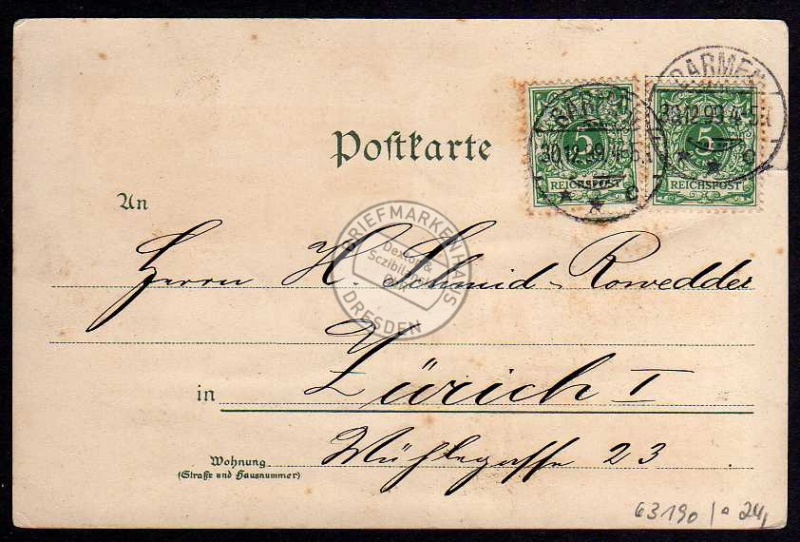 BARMEN
30.12.99.4-5N
C
5
REICHSPOST
BARMEN
30.12.99.4-5N
C
5
REICHSPOST
Postkarte
An
Herrn H. Schmid-Rowedder
BRIEFMARKENHAUS
Dexlog &
Sczibilanski
DRESDEN
in Zürich I
Wohnung
(Straße und Hausnummer)
Mühlegasse 23
63190